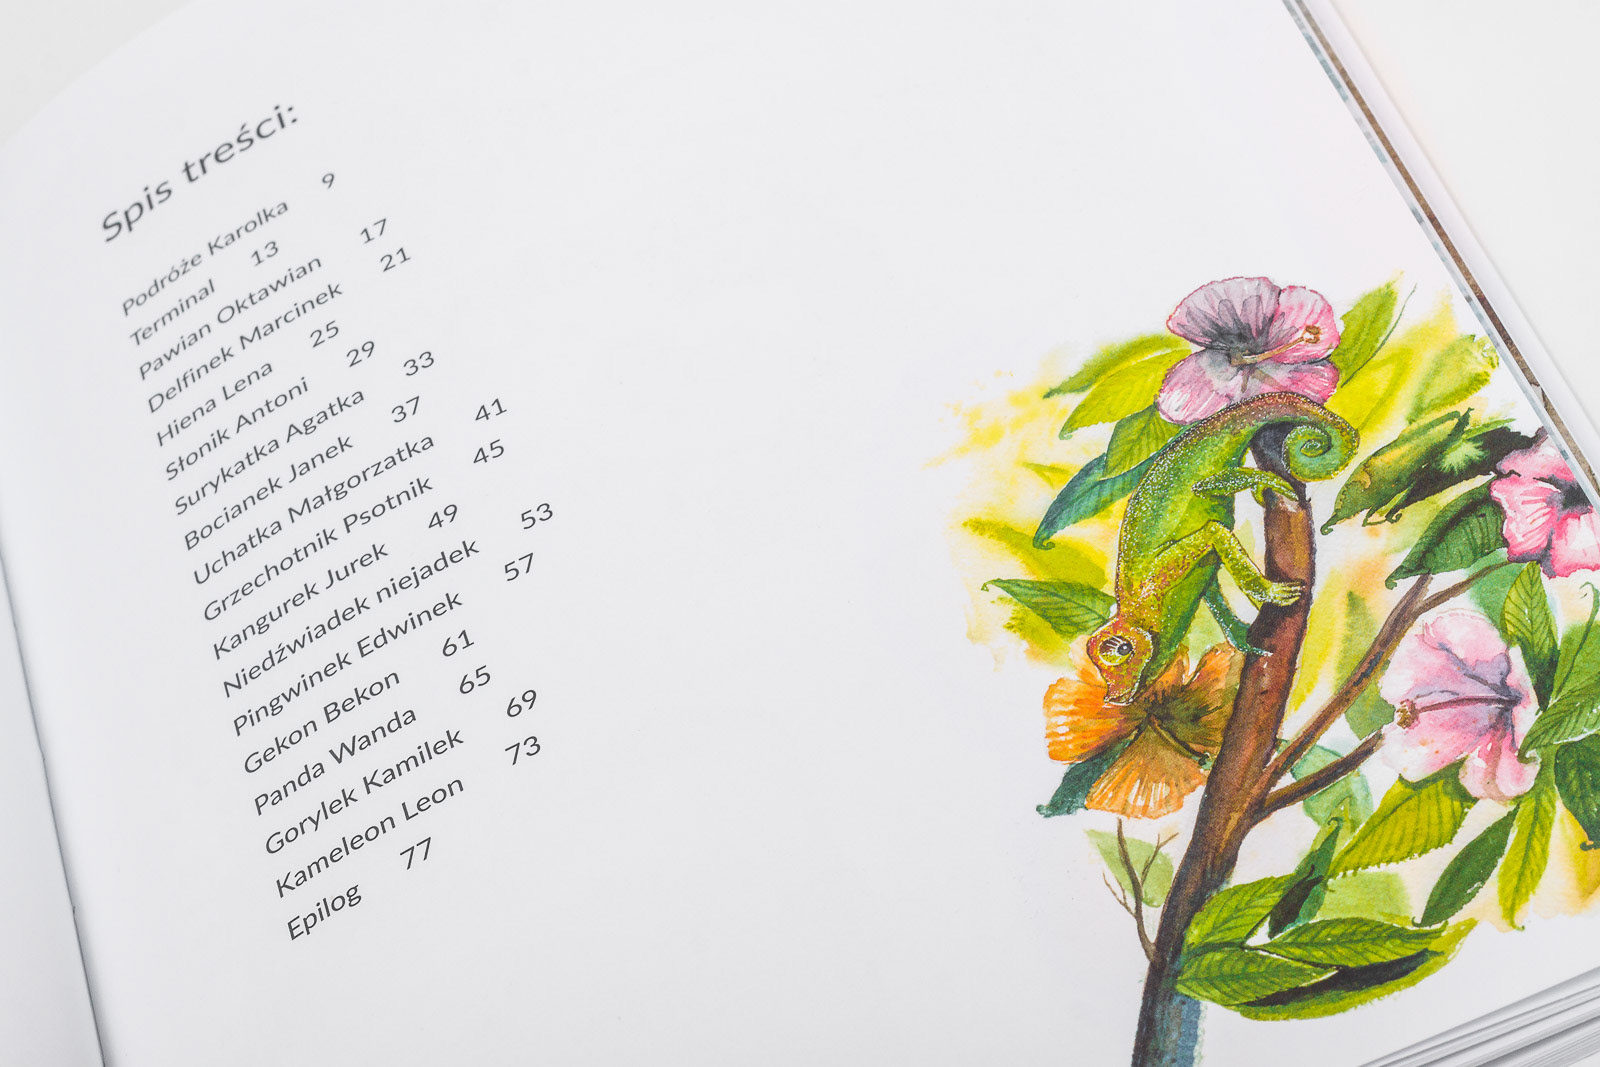 Spis treści:
Podróże Karolka 9
Terminal 13
Pawian Oktawian 17
Delfinek Marcinek 21
Hiena Lena 25
Słonik Antoni 29
Surykatka Agatka 33
Bocianek Janek 37
Uchatka Małgorzatka 41
Grzechotnik Psotnik 45
Kangurek Jurek 49
Niedźwiadek niejadek 53
Pingwinek Edwinek 57
Gekon Bekon 61
Panda Wanda 65
Gorylek Kamilek 69
Kameleon Leon 73
Epilog 77